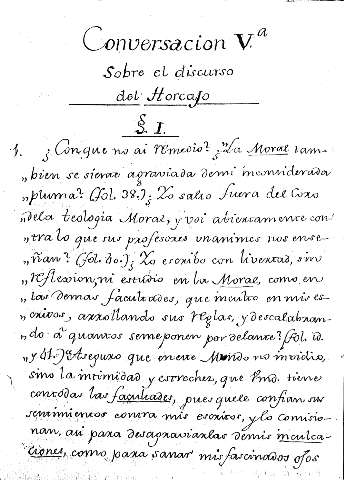 Conversacion V.ª
Sobre el discurso
del Horcajo
§ I.
1. ¿Conque no ai remedio? ¿La Moral tam-
„bien se siente agraviada demi inconsiderada
„pluma? (fol. 38.) ¿Yo salto fuera del Coro
„dela teologia Moral, y voi abiertamente con
„tra lo que sus profesores unanimes nos ense-
„ñan? (fol. 40.) ¿Yo escribo con livertad, sin
„reflexion, ni estudio en la Moral, como en
„las demas facultades, que inculco en mis es-
„critos, arrollando sus reglas, y descalabran-
„do a quantos seme ponen por delante? (fol. id.
„y 41.) Aseguro que en este Mundo no invidio,
sino la intimidad y estrechez, que Vmd. tiene
contodas las facultades, pues quele confian sus
sentimientos contra mis escritos, y lo comisio-
nan, asi para desagraviarlas demis inculca-
ciones, como para sanar mis fascinados ojos